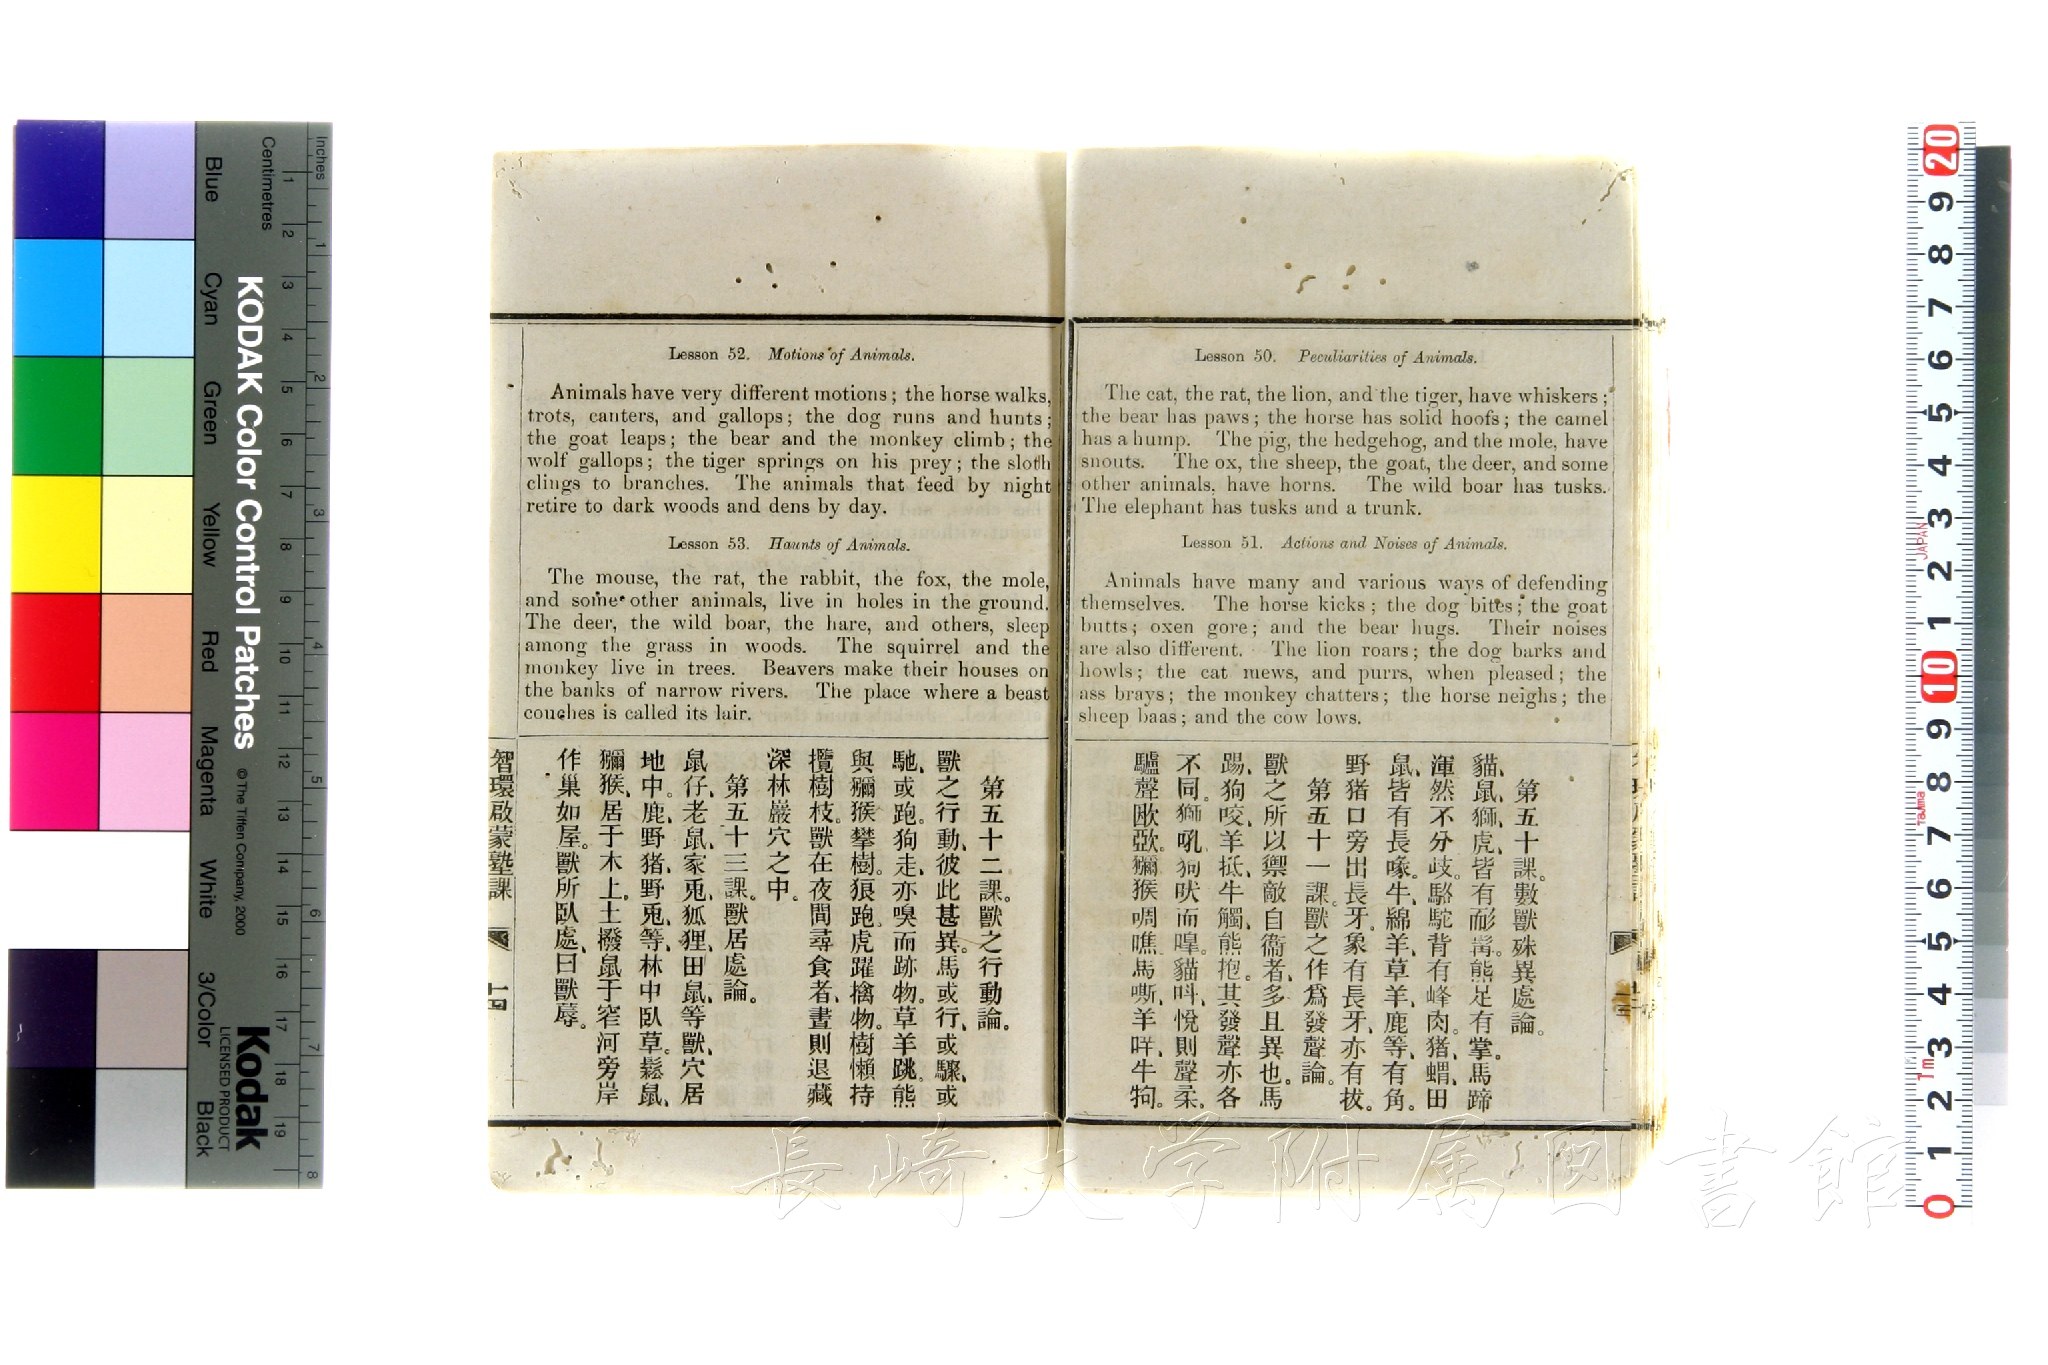 Lesson 50. Peculiarities of Animals.
The cat, the rat, the lion, and the tiger, have whiskers;
the bear has paws; the horse has solid hoofs; the camel
has a hump. The pig, the hedgehog, and the mole, have
snouts. The ox, the sheep, the goat, the deer, and some
other animals, have horns. The wild boar has tusks.
The elephant has tusks and a trunk.
Lesson 51. Actions and Noises of Animals.
Animals have many and various ways of defending
themselves. The horse kicks; the dog bites; the goat
butts; oxen gore; and the bear hugs. Their noises
are also different. The lion roars; the dog barks and
howls; the cat mews, and purrs, when pleased; the
ass brays; the monkey chatters; the horse neighs; the
sheep baas; and the cow lows.
第五十課。數獸殊異處論。
貓、鼠、獅、虎、皆有耏髯。熊足有掌。馬蹄
渾然不分歧。駱駝背有峰肉。猪、蝟、田
鼠、皆有長喙。牛、綿羊、草羊、鹿等、有角。
野猪口旁出長牙。象有長牙、亦有拔。
第五十一課。獸之作爲發聲論。
獸之所以禦敵自衞者、多且異也。馬
踢、狗咬、羊抵、牛觸、熊抱。其發聲亦各
不同。獅吼、狗吠而嘷。貓呌、悅則聲柔、
驢聲歐亞。獼猴啁噍、馬嘶、羊咩、牛㸸。
Lesson 52. Motions of Animals.
Animals have very different motions; the horse walks,
trots, canters, and gallops; the dog runs and hunts;
the goat leaps; the bear and the monkey climb; the
wolf gallops; the tiger springs on his prey; the sloth
clings to branches. The animals that feed by night
retire to dark woods and dens by day.
Lesson 53. Haunts of Animals.
The mouse, the rat, the rabbit, the fox, the mole,
and some other animals, live in holes in the ground.
The deer, the wild boar, the hare, and others, sleep
among the grass in woods. The squirrel and the
monkey live in trees. Beavers make their houses on
the banks of narrow rivers. The place where a beast
couches is called its lair.
第五十二課。獸之行動論。
獸之行動、彼此甚異。馬或行、或驟、或
馳、或跑。狗走、亦嗅而跡物。草羊跳。熊
與獼猴攀樹。狼跑。虎躍擒物。樹懶持
攬樹枝。獸在夜間尋食者、晝則退藏
深林巖穴之中。
第五十三課。獸居處論。
鼠仔、老鼠、家兎、狐狸、田鼠、等獸、穴居
地中。鹿、野猪、野兎、等、林中臥草。鬆鼠、
獼猴、居于木上。土撥鼠于窄河旁岸
作巢如屋。獸所臥處、曰獸蓐。
智環啟蒙塾課
十四
KODAK Color Control Patches
© The Tiffen Company, 2000
Kodak
LICENSED PRODUCT
Inches
Centimetres
1 2 3 4 5 6 7 8 9 10 11 12 13 14 15 16 17 18 19
1 2 3 4 5 6 7 8
Blue
Cyan
Green
Yellow
Red
Magenta
White
3/Color
Black
20 9 8 7 6 5 4 3 2 1 10 9 8 7 6 5 4 3 2 1 0
JAPAN
Tajima
1m
長崎大学附属図書館